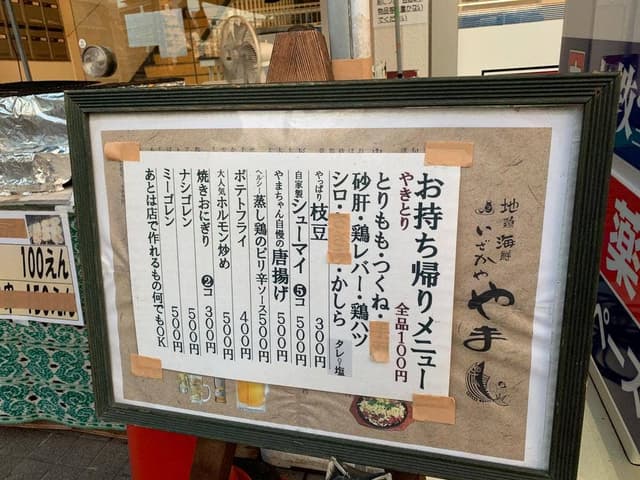 お持ち帰りメニュー
やきとり 全品100円
とりもも・つくね・
砂肝・鶏レバー・鶏ハツ
シロ・ ・かしら タレ・塩
やっぱり枝豆 300円
自家製シューマイ 5コ 500円
やまちゃん自慢の唐揚げ 500円
ヘルシー蒸し鶏のピリ辛ソース500円
ポテトフライ 400円
大人気ホルモン炒め 500円
焼きおにぎり 2コ 300円
ナシゴレン 500円
ミーゴレン 500円
あとは店で作れるもの何でもOK
地酒 海鮮
いざかや
やま
100えん
150えん
薬